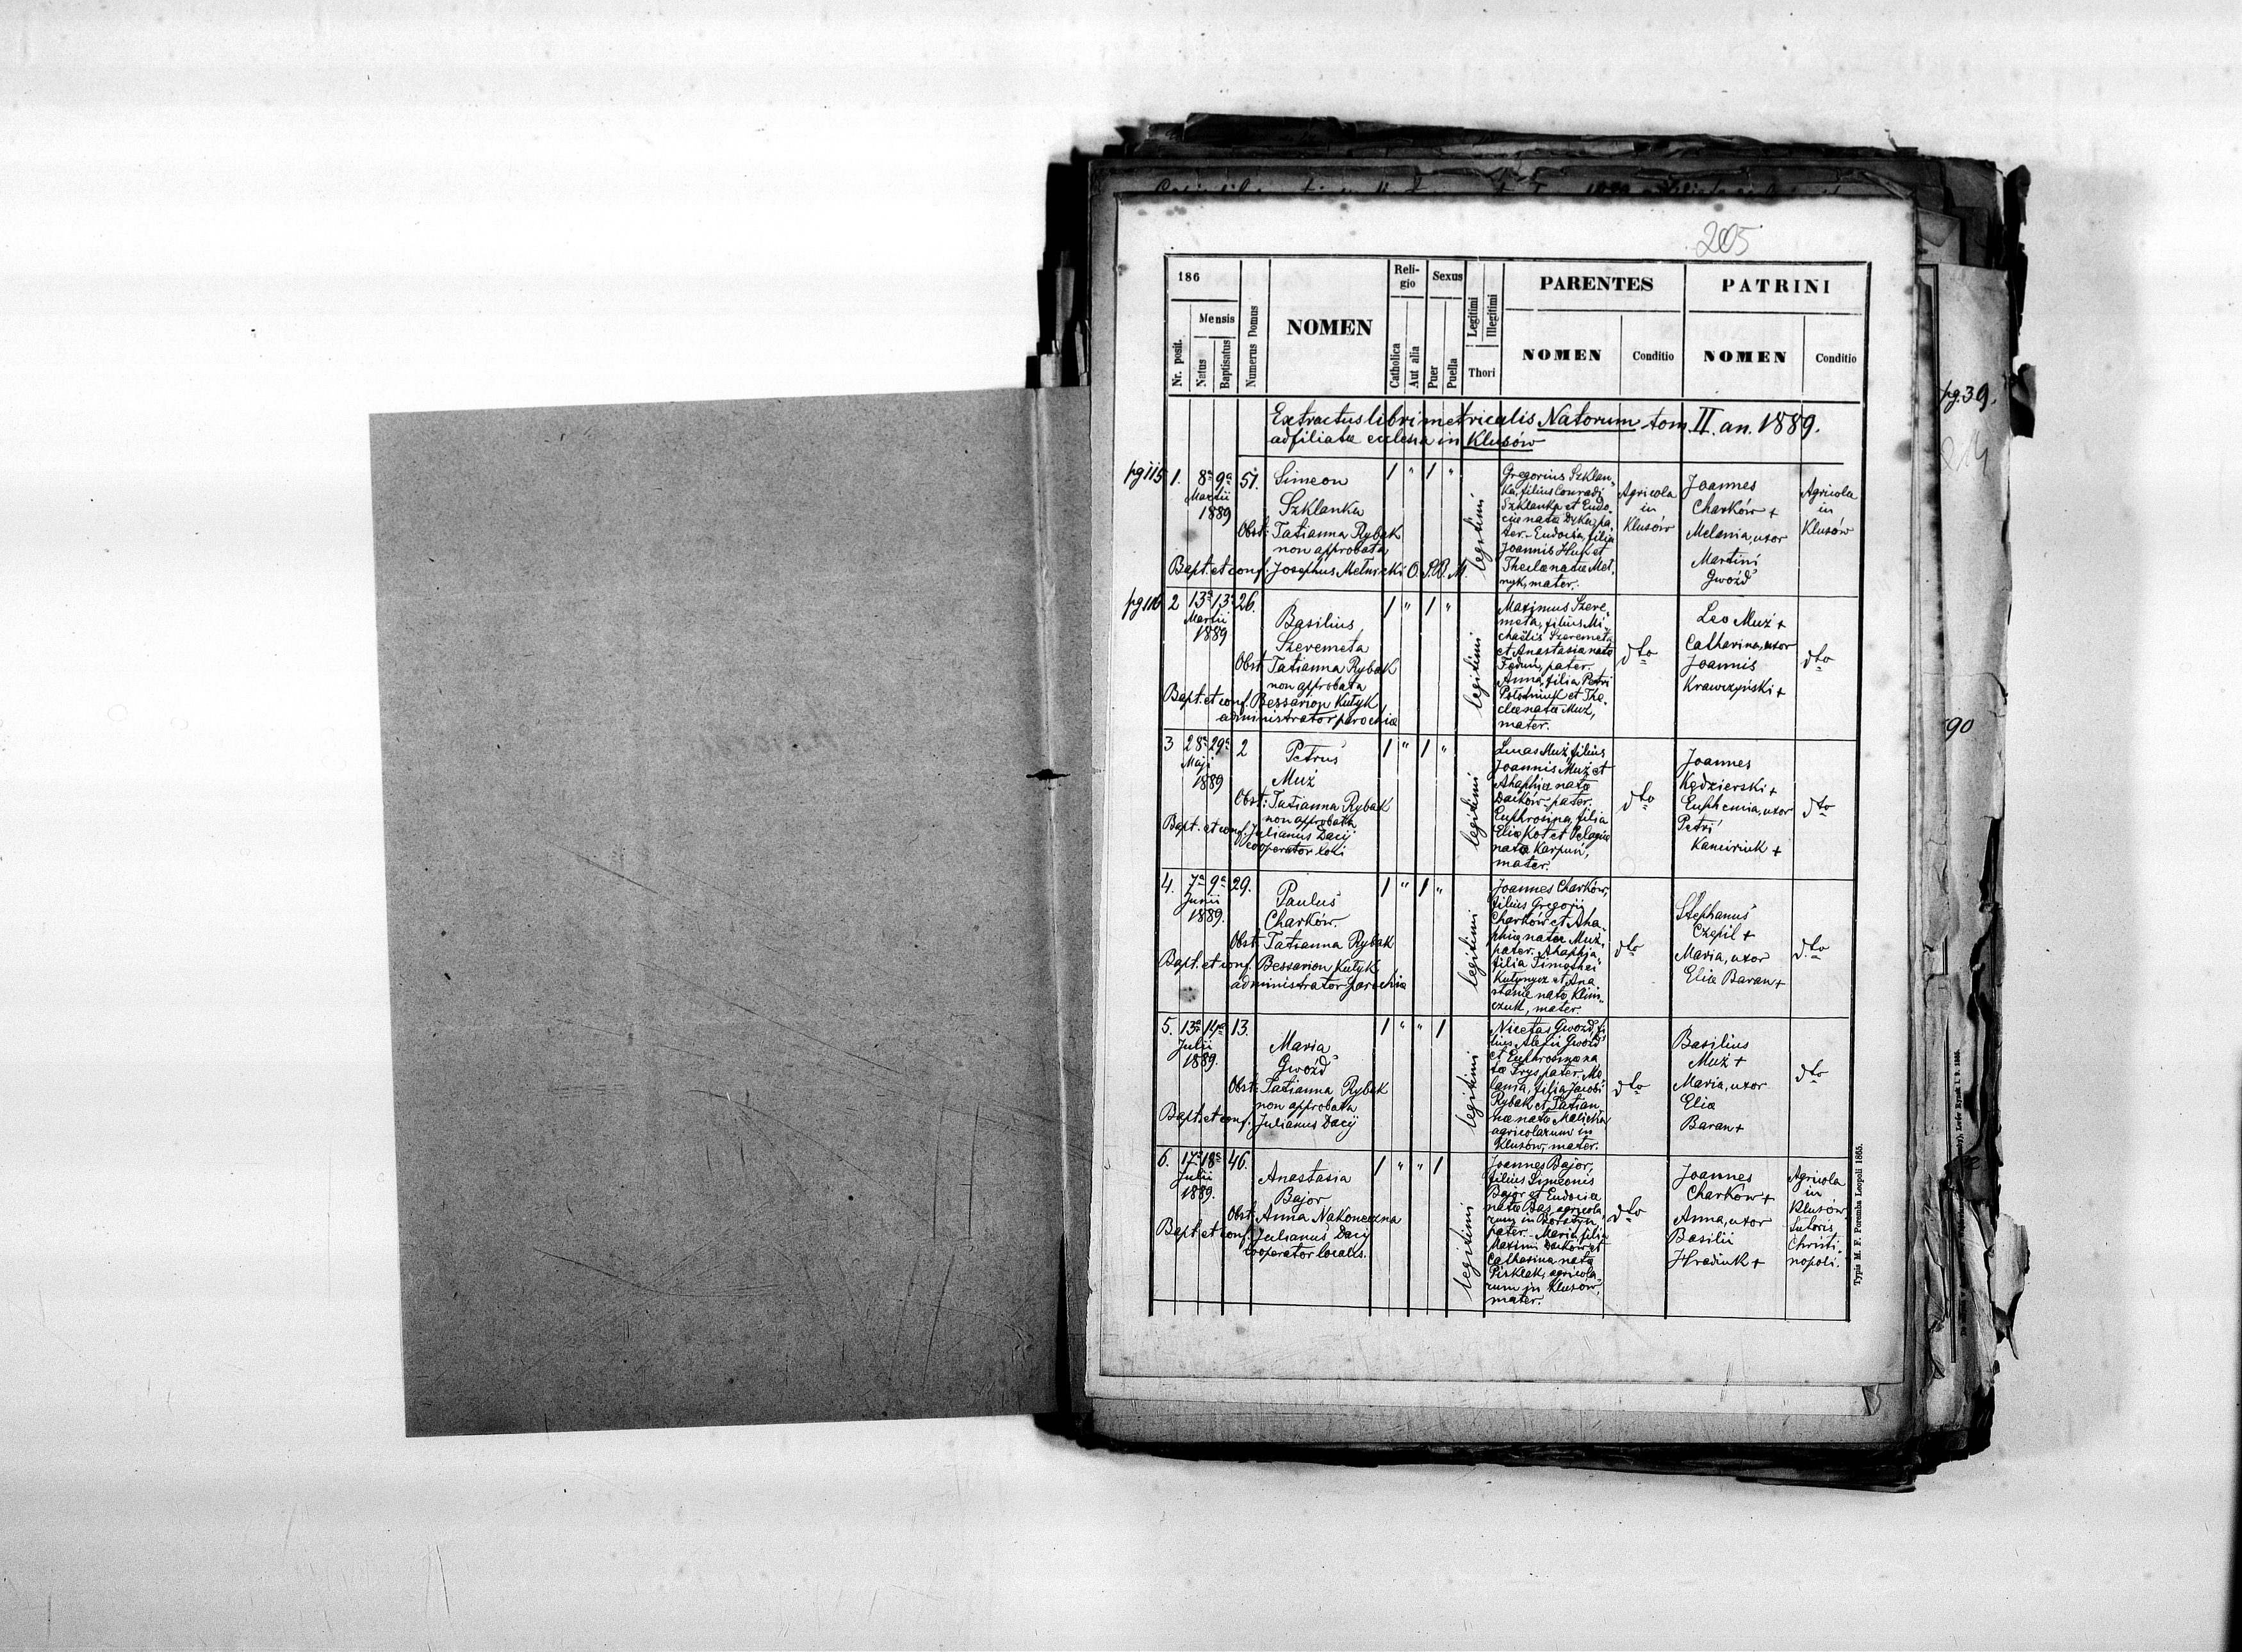 205
186
Nr. posit.
Mensis
Natus
Baptisatus
Numerus Domus
NOMEN
Reli-
gio
Catholica
Aut alia
Sexus
Puer
Puella
Legitimi
Illegitimi
Thori
PARENTES
NOMEN
Conditio
PATRINI
NOMEN
Conditio
Extractus libri metricalis Natorum tom. II. an. 1889.
ad filiatæ ecclesiæ in Klusów
pg 115
1.
8ª 9ª
Martii
1889
51.
Simeon
Szklanka
Obst: Tatianna Rybak
non approbata
Bapt. et conf. Josephus Metnicki O.S.B.M.
1 " 1 "
legitimi
Gregorius Szklan-
ka, filius Conradi
Szklanka et Eudo-
ciæ natæ Dyka, pa-
ter. - Eudocia, filia
Joannis Huk et
Theclæ natæ Mel-
nyk, mater.
Agricola
in
Klusów
Joannes
Charków +
Melania, uxor
Martini
Gwoźd
Agricola
in
Klusów
pg 116
2
13ª 13ª
Martii
1889
26.
Basilius
Szeremeta
Obst: Tatianna Rybak
non approbata
Bapt. et conf. Bessarion Kutyk,
administrator parochiæ
1 " 1 "
legitimi
Maximus Szere-
meta, filius Mi-
chaëlis Szeremeta
et Anastasiæ natæ
Feduń, pater.
Anna, filia Petri
Pototniuk et The-
clæ natæ Muż,
mater.
dto
Leo Muż +
Catharina, uxor
Joannis
Krawczyński +
dto
3
28ª 29ª
Maji
1889
2
Petrus
Muż
Obst: Tatianna Rybak
non approbata
Bapt. et conf. Julianus Dacij
cooperator loci
1 " 1 "
legitimi
Lucas Muż, filius
Joannis Muż et
Ahaphiæ natæ
Daćków, pater.
Euphrosina, filia
Eliæ Kot et Pelagiæ
natæ Karpuń,
mater.
dto
Joannes
Kędzierski +
Euphemia, uxor
Petri
Kanciriuk +
dto
4.
7ª 9ª
Junii
1889.
29.
Paulus
Charków.
Obst: Tatianna Rybak
Bapt. et conf. Bessarion Kutyk
administrator parochiæ
1 " 1 "
legitimi
Joannes Charków,
filius Gregorij
Charków et Aha-
phiæ natæ Muż,
pater. Ahaphia
filia Timothei
Kutynycz et Ana-
stasiæ natæ Klim-
czuk, mater.
dto
Stephanus
Czepil +
Maria, uxor
Eliæ Baran +
dto
5.
13ª 14ª
Julii
1889.
13.
Maria
Gwoźd
Obst: Tatianna Rybak
non approbata
Bapt. et conf. Julianus Dacij
1 " " 1
legitimi
Nicetas Gwoźd, fi-
lius Alexii Gwoźd
et Euphrosinæ na-
tæ Frys pater. Me-
lania, filia Jacobi
Rybak et Tatian-
næ natæ Malicka
agricolarum in
Klusów, mater.
dto
Basilius
Muż +
Maria, uxor
Eliæ
Baran +
dto
6.
17ª 18ª
Julii
1889.
46.
Anastasia
Bajor
Obst: Anna Nakoneczna
Bapt. et conf. Julianus Dacij
cooperator localis.
1 " " 1
legitimi
Joannes Bajor,
filius Simeonis
Bajor et Eudociæ
natæ Bas, agricola-
rum in Boratyn
pater. - Maria filia
Maximi Daćków et
Catharinæ natæ
Pirklak, agricola-
rum in Klusów,
mater.
dto
Joannes
Charków +
Anna, uxor
Basilii
Hradiuk +
Agricola
in
Klusów
sutoris
Christi-
nopoli.
Typis M. F. Poremba Leopoli 1865.
pg. 39.
90